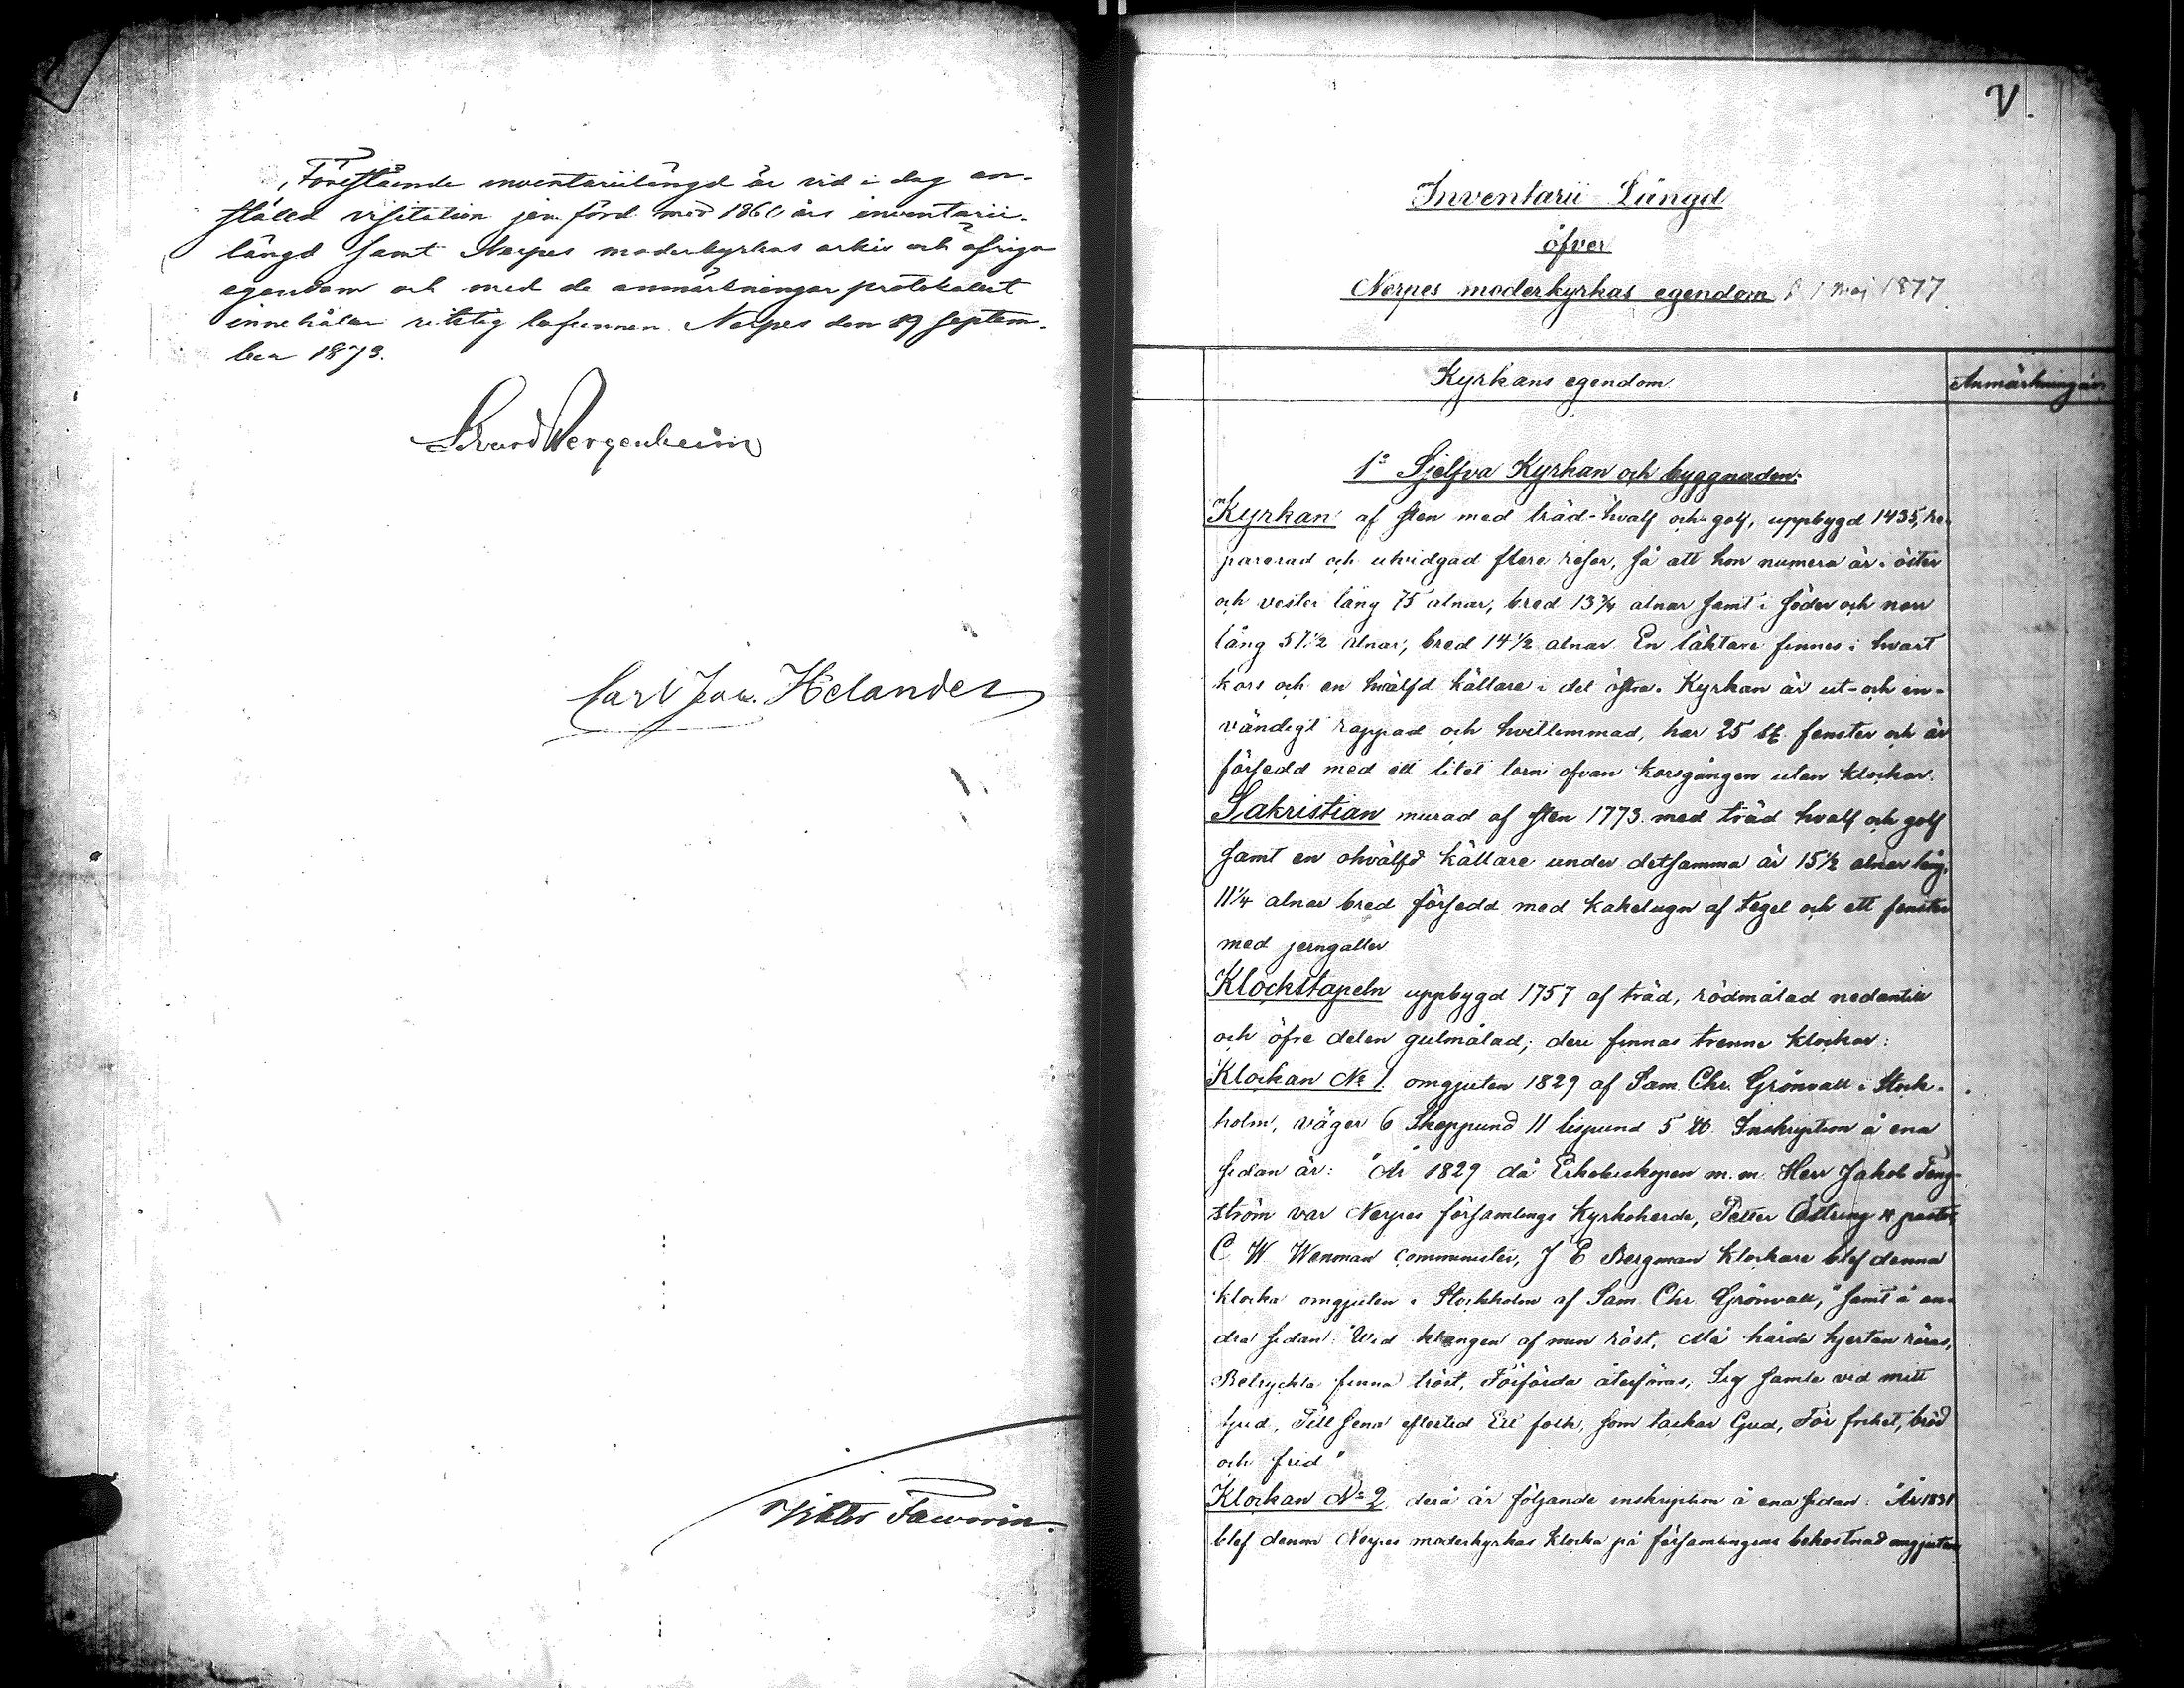 Föreslående inventariilängd är vid i dag an-
ställd visitation jemförd med 1860 års inventarii-
längd samt Nerpes moderkyrkas arkiv och öfriga
egendom och med de anmärkningar protokollet
innehåller riktig befunnen. Nerpes den 19 Septem-
ber 1873.
Edvard Bergenheim
Carl Jak. Helander
Viktor Faworin.
V.
Inventarii Längd
öfver
Nerpes moderkyrkas egendom d 1 Maj 1877
Kyrkans egendom.
Anmärkningar
1o Sjelfva Kyrkan och byggnaden:
Kyrkan af sten med träd-hvalf och golf, uppbygd 1435, re-
parerad och utvidgad flere resor, så att hon numera är i öster
och vester lång 75 alnar, bred 13 3/4 alnar samt i söder och norr
lång 57 1/2 alnar, bred 14 1/2 alnar. En läktare finnes i hvart
kors och en hvälfd källare i det östra. Kyrkan är ut- och in-
vändigt rappad och hvitlimmad, har 25 st. fenster och är
försedd med ett litet torn ofvan korsgången utan klockor.
Sakristian murad af sten 1773. med träd hvalf och golf
samt en ohvälfd källare under detsamma är 15 1/2 alnar lång,
11 1/4 alnar bred försedd med kakelugn af tegel och ett fenster
med jerngaller
Klockstapeln uppbygd 1757 af träd, rödmålad nedantill
och öfre delen gulmålad; deri finnas trenne klockor:
Klockan No 1 omgjuten 1829 af Sam. Chr. Grönvall i Stock-
holm, väger 6 Skeppund 11 lispund 5 ℔. Inskription å ena
sidan är: "År 1829 då Erkebiskopen m. m. Herr Jakob Teng-
ström var Nerpes församlings Kyrkoherde, Petter Östring pastor,
C W Wenman Comminister, J E Bergman Klockare blef denna
klocka omgjuten i Stockholm af Sam. Chr Grönvall," samt å an-
dra sidan: "Wid klangen af min röst, Må hårda hjertan röras,
Betryckta finna tröst, Förförda återföras, Sig samle vid mitt
ljud, Till sena eftertid Ett folk, som tackar Gud, För frihet, bröd
och frid"
Klockan No 2 derå är följande inskription å ena sidan: "År 1831
blef denna Nerpes moderkyrkas klocka på församlingens bekostnad omgjuten